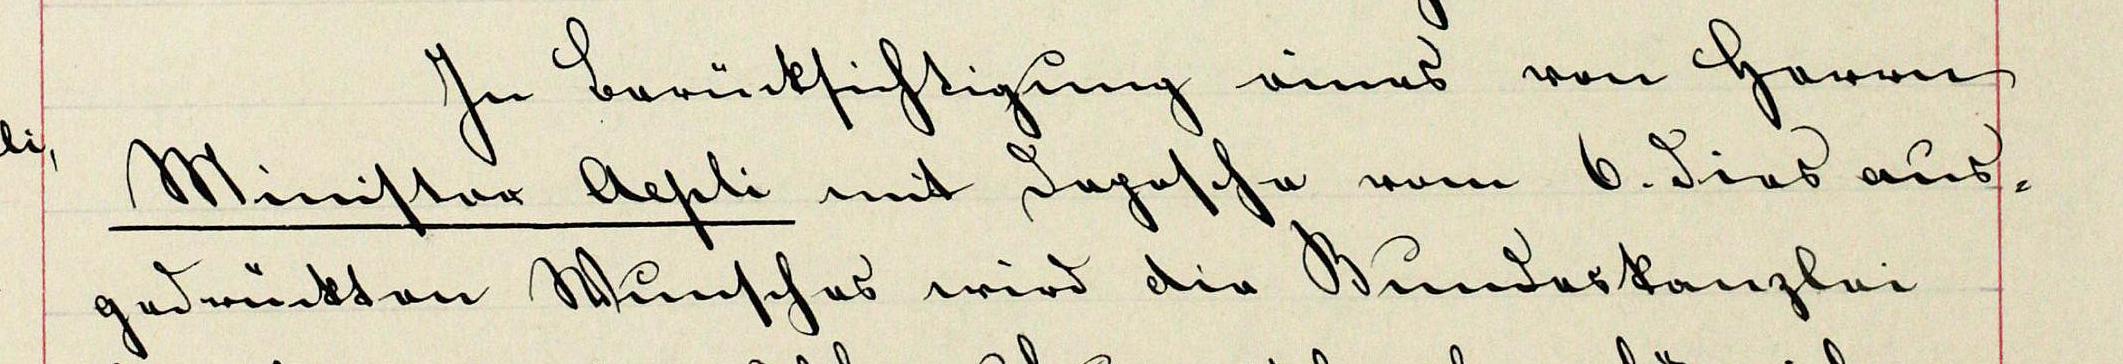 li,
In Berücksichtigung eines von Herrn
Minister Aepli mit Depesche vom 6. dies aus-
gedrückten Wunsches wird die Bundeskanzlei